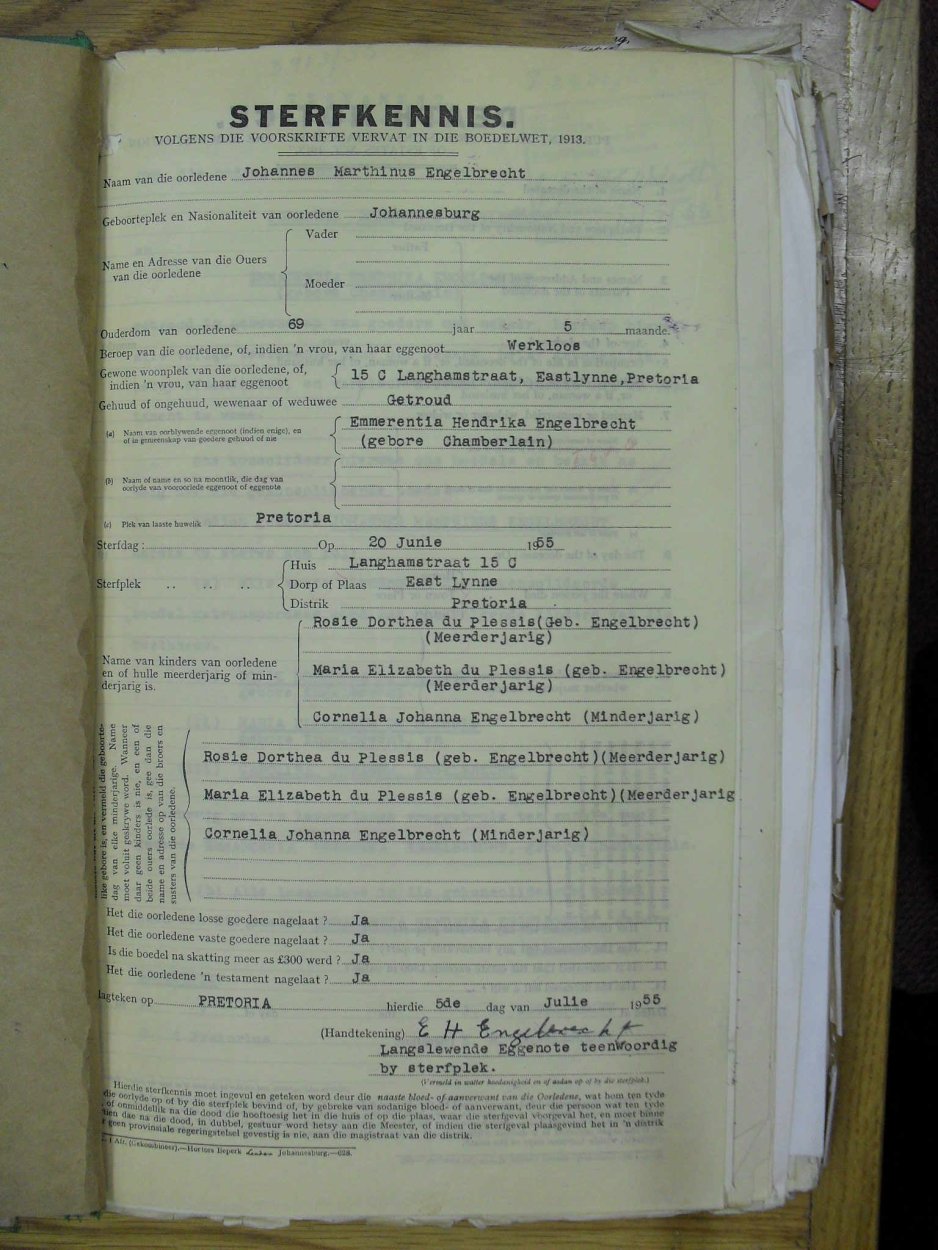 STERFKENNIS.
VOLGENS DIE VOORSKRIFTE VERVAT IN DIE BOEDELWET, 1913.
Naam van die oorledene Johannes Marthinus Engelbrecht
Geboorteplek en Nasionaliteit van oorledene Johannesburg
Name en Adresse van die Ouers van die oorledene
Vader
Moeder
Ouderdom van oorledene 69 jaar 5 maande.
Beroep van die oorledene, of, indien 'n vrou, van haar eggenoot Werkloos
Gewone woonplek van die oorledene, of,
indien 'n vrou, van haar eggenoot
15 C Langhamstraat, Eastlynne,Pretoria
Gehuud of ongehuud, wewenaar of weduwee Getroud
(a) Naam van oorblywende eggenoot (indien enige), en
of in gemeenskap van goedere gehuud of nie
Emmerentia Hendrika Engelbrecht
(gebore Chamberlain)
(b) Naam of name en so na moontlik, die dag van
oorlyde van vooroorlede eggenoot of eggenote
(c) Plek van laaste huwelik Pretoria
Sterfdag: Op 20 Junie 1955
Sterfplek .. .. ..
Huis Langhamstraat 15 C
Dorp of Plaas East Lynne
Distrik Pretoria
Name van kinders van oorledene
en of hulle meerderjarig of min-
derjarig is.
Rosie Dorthea du Plessis(Geb. Engelbrecht)
(Meerderjarig)
Maria Elizabeth du Plessis (geb. Engelbrecht)
(Meerderjarig)
Cornelia Johanna Engelbrecht (Minderjarig)
like gebore is, en vermeld die geboorte-
dag van elke minderjarige. Name
moet voluit geskrywe word. Wanneer
daar geen kinders is nie, en een of
beide ouers oorlede is, gee dan die
name en adresse op van die broers en
susters van die oorledene.
Rosie Dorthea du Plessis (geb. Engelbrecht)(Meerderjarig)
Maria Elizabeth du Plessis (geb. Engelbrecht)(Meerderjarig
Cornelia Johanna Engelbrecht (Minderjarig)
Het die oorledene losse goedere nagelaat ? Ja
Het die oorledene vaste goedere nagelaat ? Ja
Is die boedel na skatting meer as £300 werd ? Ja
Het die oorledene 'n testament nagelaat ? Ja
agteken op PRETORIA hierdie 5de dag van Julie 1955
(Handtekening) E H Engelbrecht
Langslewende Eggenote teenwoordig
by sterfplek.
(Vermeld in watter hoedanigheid en of aldan op of by die sterfplek.)
Hierdie sterfkennis moet ingevul en geteken word deur die naaste bloed- of aanverwant van die Oorledene, wat hom ten tyde
die oorlyde op of by die sterfplek bevind of, by gebreke van sodanige bloed- of aanverwant, deur die persoon wat ten tyde
of onmiddellik na die dood die hooftoesig het in die huis of op die plaas, waar die sterfgeval voorgeval het, en moet binne
tien dae na die dood, in dubbel, gestuur word hetsy aan die Meester, of indien die sterfgeval plaasgevind het in 'n distrik
geen provinsiale regeringstelsel gevestig is nie, aan die magistraat van die distrik.
Afr. (Gekombineer).—Hortors Beperk Johannesburg.—628.